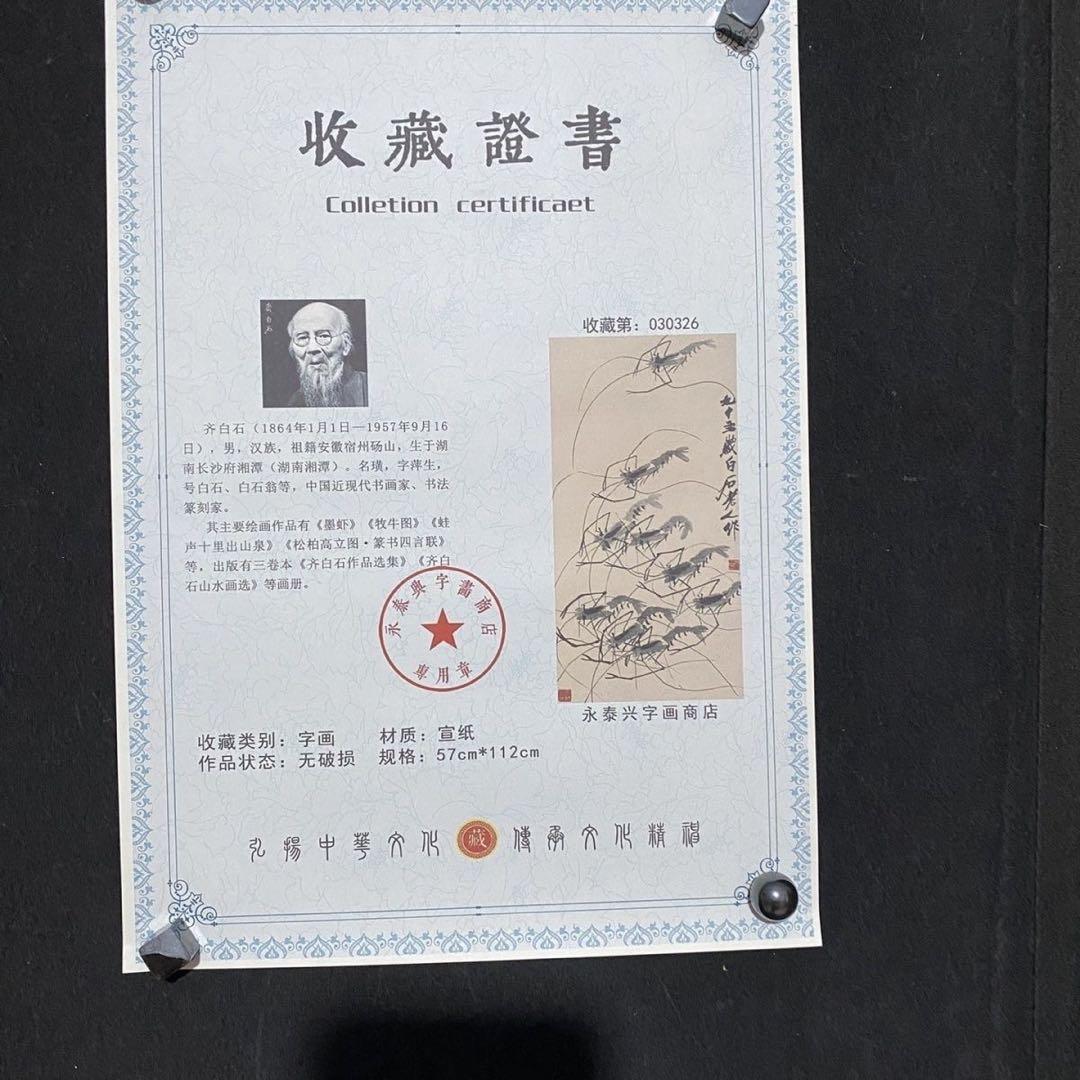 收藏證書
Colletion certificaet
齐白石
收藏第：030326
齐白石（1864年1月1日—1957年9月16
日），男，汉族，祖籍安徽宿州砀山，生于湖
南长沙府湘潭（湖南湘潭）。名璜，字萍生，
号白石、白石翁等，中国近现代书画家、书法
篆刻家。
其主要绘画作品有《墨虾》《牧牛图》《蛙
声十里出山泉》《松柏高立图·篆书四言联》
等，出版有三卷本《齐白石作品选集》《齐白
石山水画选》等画册。
九十五岁白石老人作
永泰興字畵商店
專用章
永泰兴字画商店
收藏类别：字画 材质：宣纸
作品状态：无破损 规格：57cm*112cm
弘揚中華文化 藏 傳承文化精神